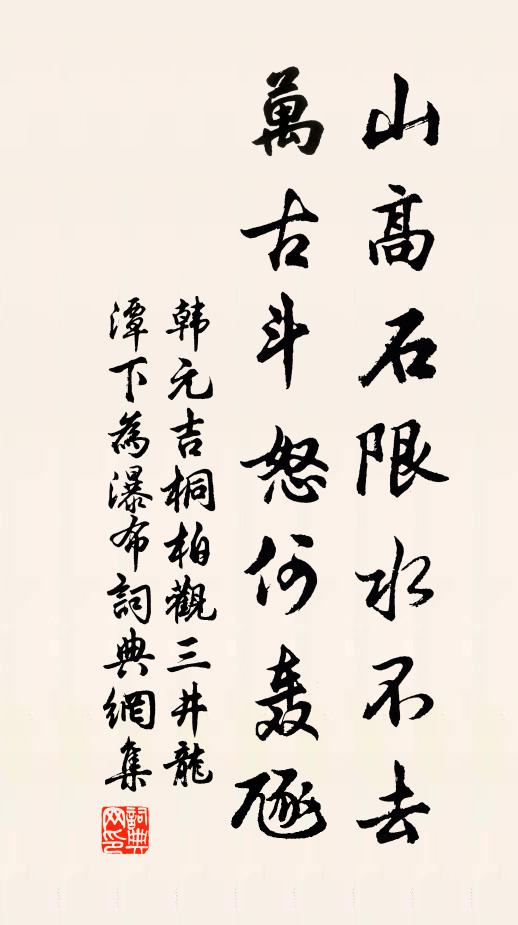 山高石限水不去
萬古斗怒何轰豗
韩元吉桐柏觀三井龍
潭下為瀑布詞典網集
詞典网印